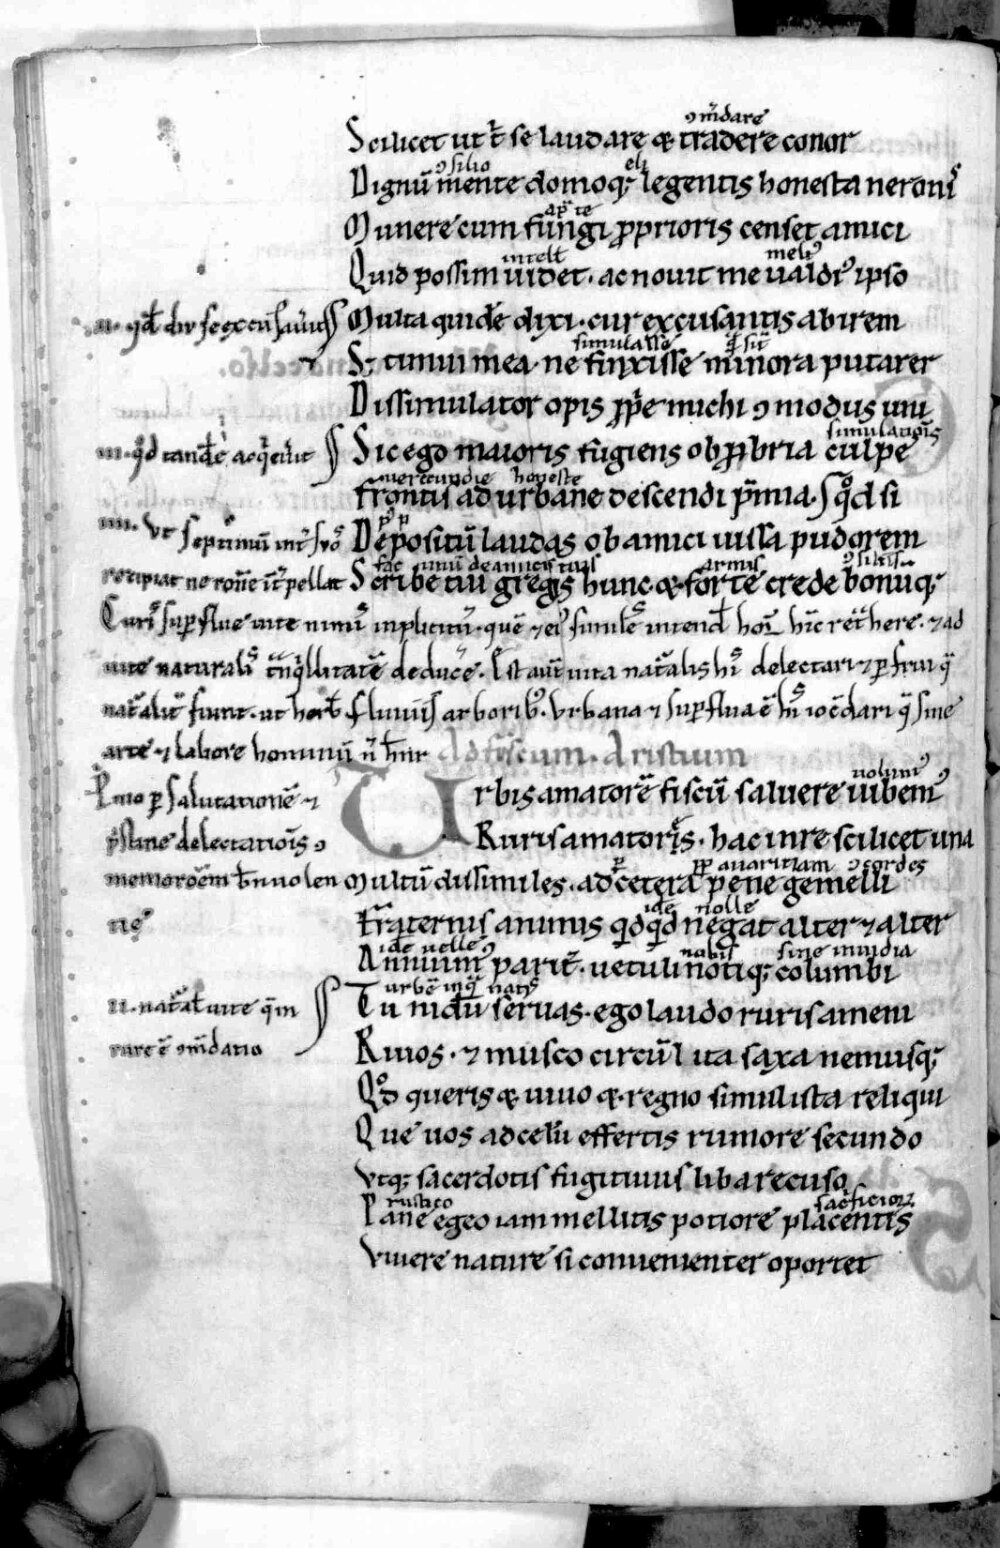 ↄm̄dare
Scilicet ut t̄ se laudare & tradere conor
ↄsilio eli
Dignū mente domoq; legentis honesta neronis
ap̄te
Munere cum fungi ꝓprioris censet amici
intelt̄ meli᷒
Quid possim uidet. ac nouit me ualdi᷒ ipso
Multa quidē dixi. cur excusatus abirem
simulasse q̄ sūt
S; timui mea. ne finxisse minora putarer
Dissimulator opis ꝓp̄e michi ↄmodus uni
simulationis
Sic ego maioris fugiens obꝓbria culpe
uerecundie honeste
frontis ad urbane descendi p̄mia. qd̊ si
Depositū laudas ob amici iussa pudorem
fac unū de amicis tuis armis
Scribe tui gregis hunc & forte crede bonūq;
iiii. ut septimiū
recipiat nerone
Cur᷒ suꝑflue uite nimiū inplicitū. quē & ei᷒ similē intend̄ hor̄ hīc ret̄here. ⁊ ad
uite naturalis t̄nq̇llitatē deducē. Est aut̄ uita nat̄alis hi᷒ delectari ⁊ ꝑfrui q̄
nat̄alit̄ fiunt. ut herb̄ fluuiis arborib᷒. Vrbana ⁊ suꝑflua ē hi᷒ iocūdari q̄ sine
arte ⁊ labore hominū ñ h̄nr
Ad fuscum. Aristium
P̄mo ꝑ salutationē ⁊
p̄stine delectatiois ↄ
memorōem b̄nuolen
nē
uolum᷒
Urbis amatorē fuscū saluere iubem᷒
Ruris amatores. hac in re scilicet una
ꝑ ꝑ auaritiam ↄcordes
Multū dissimiles. ad cetera pene gemelli
idē nolle
Fraternis animis qidqid negat alter ⁊ alter
idē uelle nobis sine inuidia
Annuim᷒ parit̄. uetuli notiq; columbi
ii. nat̄al̄ uite q̄ in
rure ē ↄm̄datio
Tu nidū seruas. ego laudo ruris ameni
Riuos. ⁊ musco circūlita saxa nemusq;
Qd̊ queris & uiuo & regno simul ista reliqui
Que uos ad celū effertis rumore secundo
Vtq; sacerdotis fugitiuus liba recuso
rustico sac̄ficior̄
Pane egeo iam mellitis potiore placentis
Viuere nature si conuenienter oportet